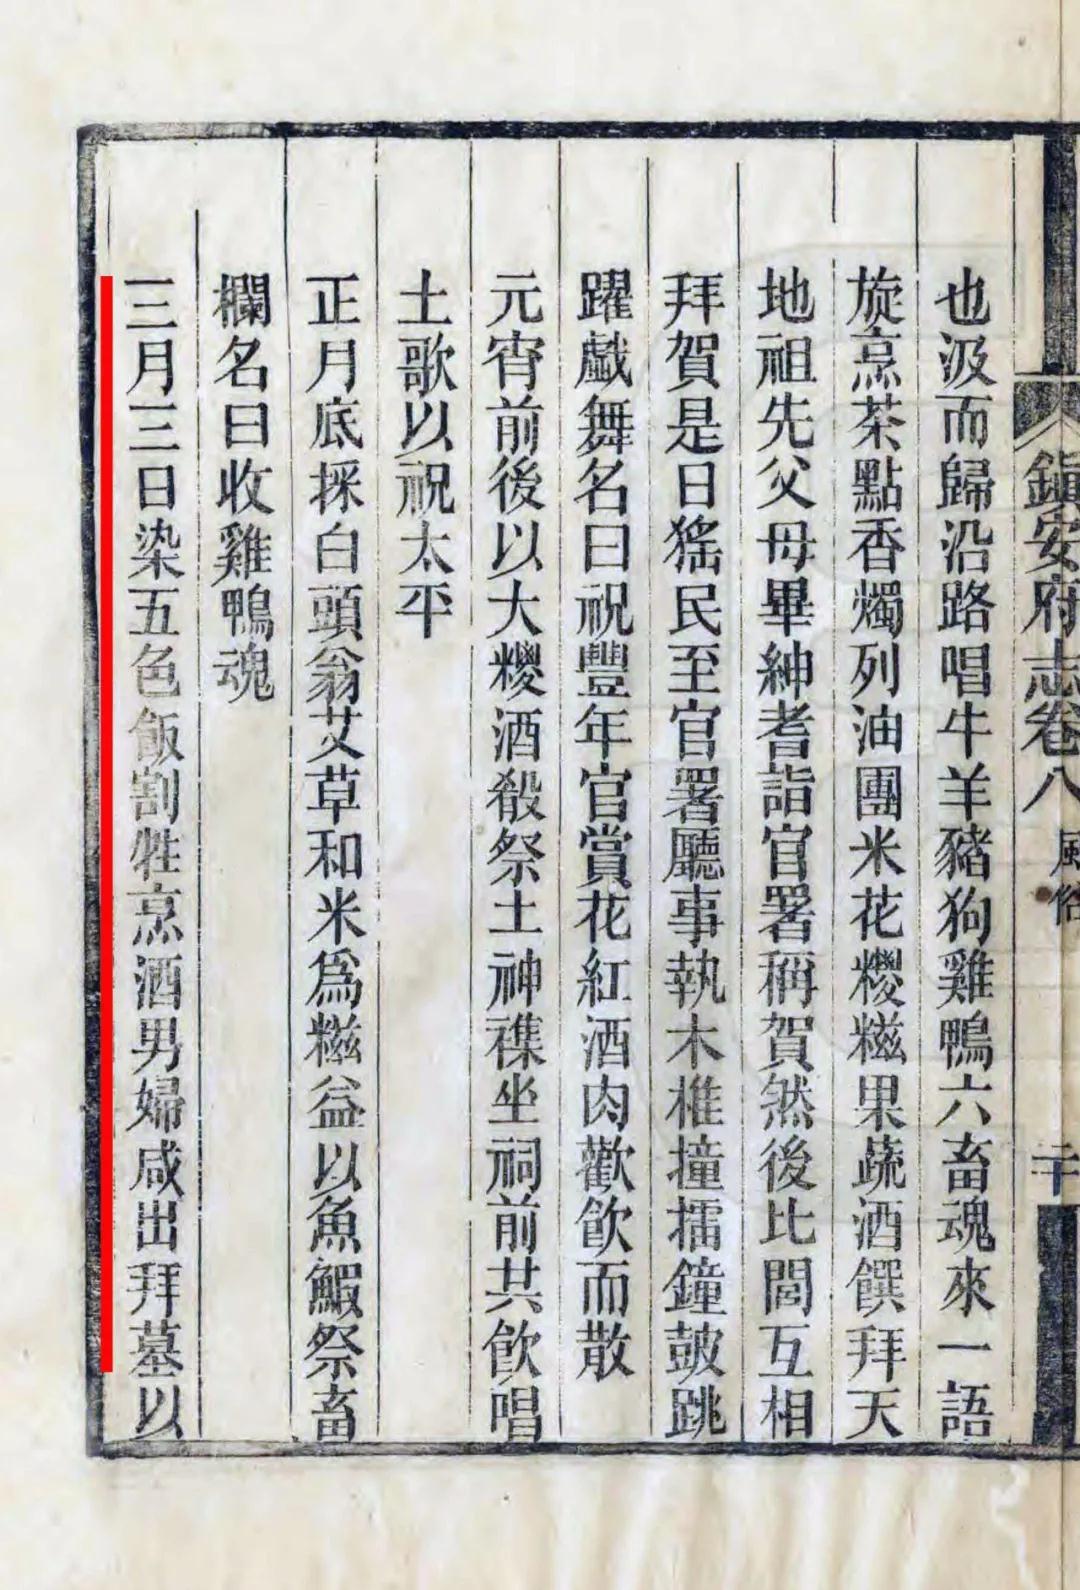 鎮安府志卷八 風俗 二十
也汲而歸沿路唱牛羊豬狗雞鴨六畜魂來一語
旋烹茶點香燭列油團米花糉糍果蔬酒饌拜天
地祖先父母畢紳耆詣官署稱賀然後比閭互相
拜賀是日猺民至官署廳事執木椎撞擂鐘皷跳
躍戱舞名曰祝豐年官賞花紅酒肉歡飮而散
元宵前後以大糉酒殽祭土神襍坐祠前共飮唱
土歌以祝太平
正月底採白頭翁艾草和米爲糍益以魚鰕祭畜
欄名曰收雞鴨魂
三月三日染五色飯割牲烹酒男婦咸出拜墓以